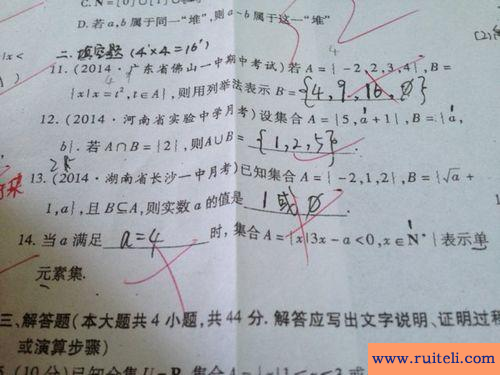 C.N=[0]∪[1]∪
D.若a,b属于同一“堆”,则a-b属于这一“堆”
二.填空题(4×4=16')
11.(2014·广东省佛山一中期中考试)若A={-2,2,3,4},B=
{x|x=t²,t∈A},则用列举法表示B={4,9,16,∅}
12.(2014·河南省实验中学月考)设集合A={5,a+1},B={a,
b}.若A∩B={2},则A∪B={1,2,5}.
13.(2014·湖南省长沙一中月考)已知集合A={-2,1,2},B={√a+
1,a},且B⊆A,则实数a的值是1或∅.
14.当a满足a=4时,集合A={x|3x-a<0,x∈N*}表示单
元素集.
三、解答题(本大题共4小题,共44分.解答应写出文字说明、证明过程
或演算步骤)
(10分)已知全集U=R,集合A={x|1≤x<3或
www.ruiteli.com